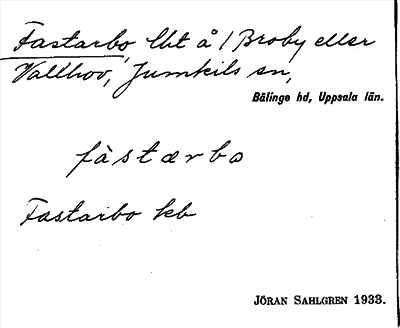 Fastarbo, lht å / Broby eller
Vallhov, Jumkils sn,
Bälinge hd, Uppsala län.
fàstærbo
Fastarbo kb
JÖRAN SAHLGREN 1933.